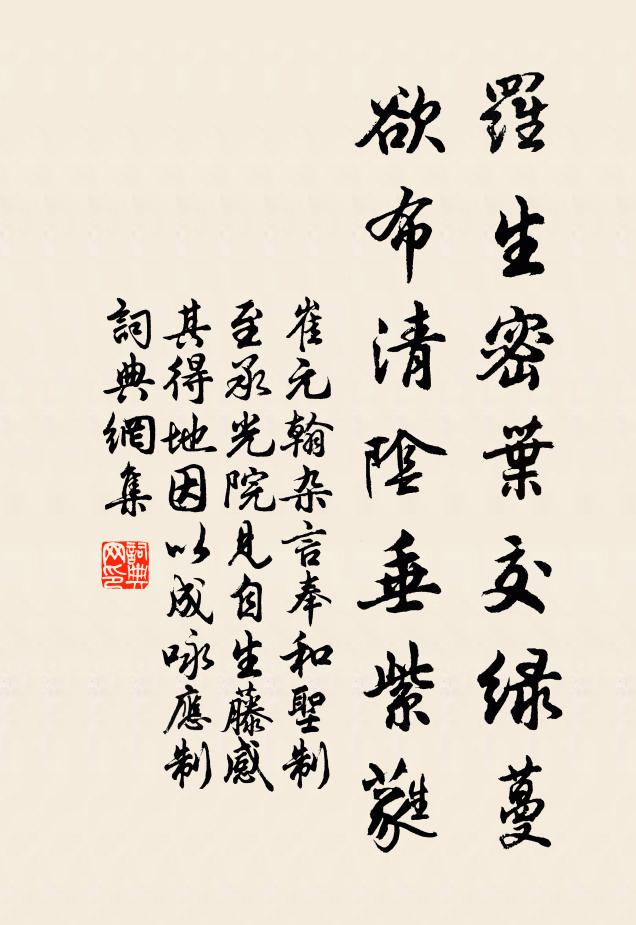 羅生密葉交綠蔓
欲布清陰垂紫蕤
崔元翰杂言奉和聖制
至承光院見自生藤感
其得地因以成咏應制
詞典網集
詞典網印